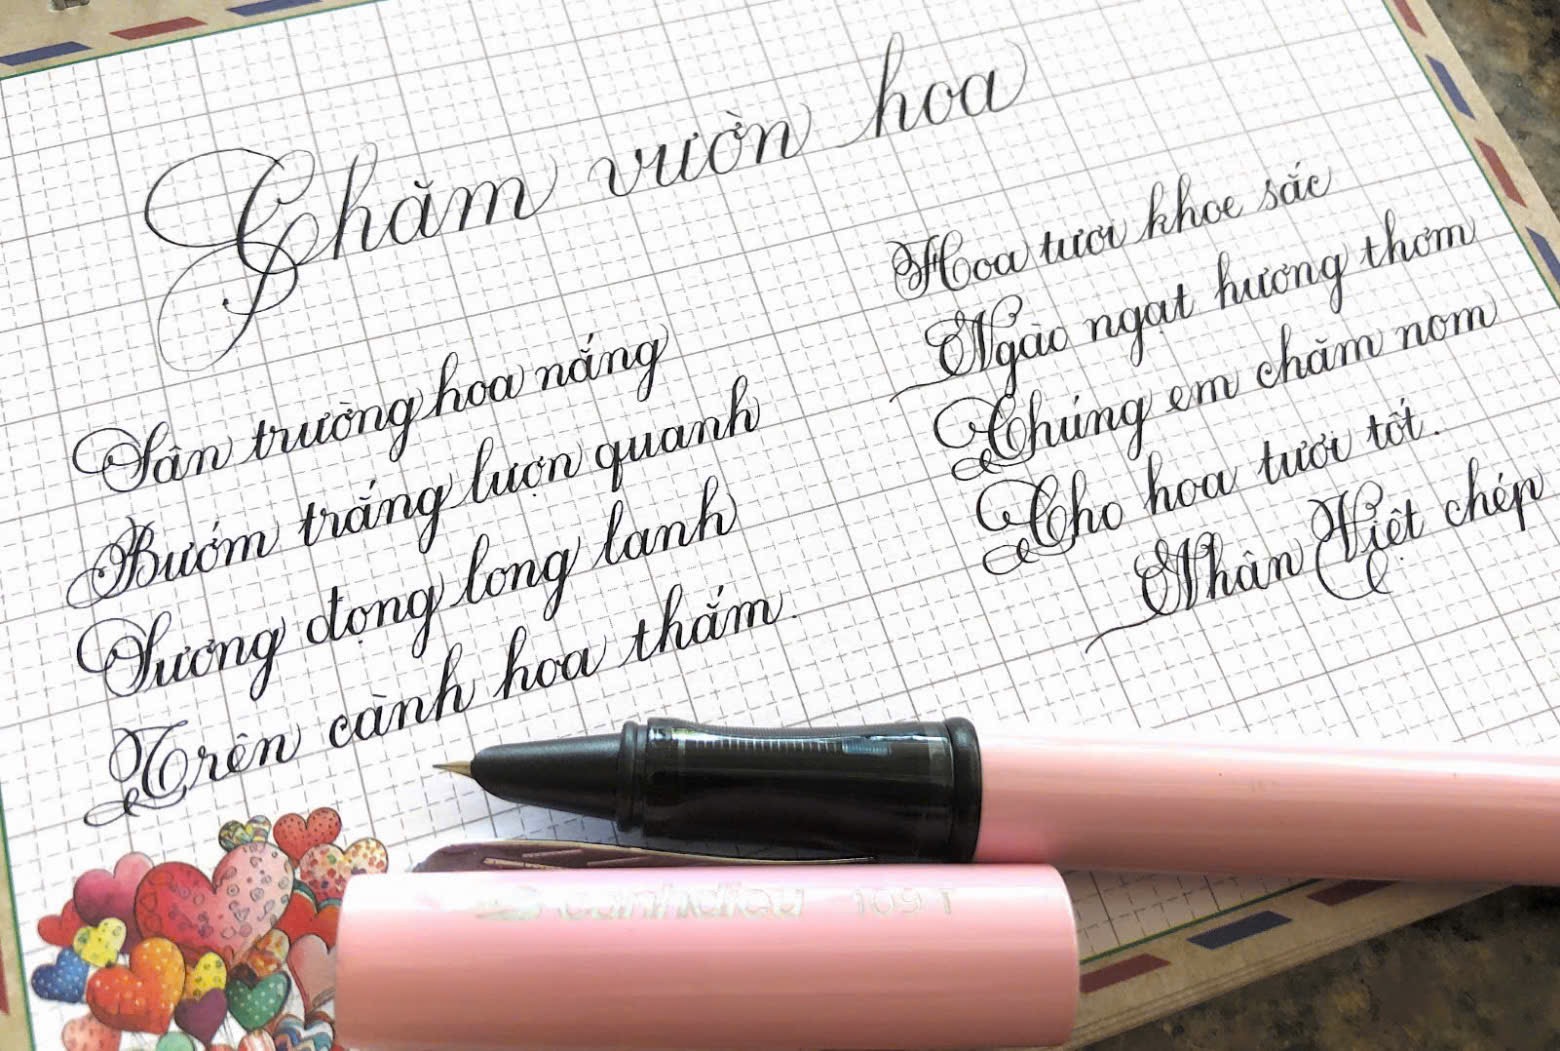 Chăm vườn hoa
Sân trường hoa nắng
Bướm trắng lượn quanh
Sương đọng long lanh
Trên cành hoa thắm.
Hoa tươi khoe sắc
Ngào ngạt hương thơm
Chúng em chăm nom
Cho hoa tươi tốt.
Nhân Việt chép
canhdieu 109T